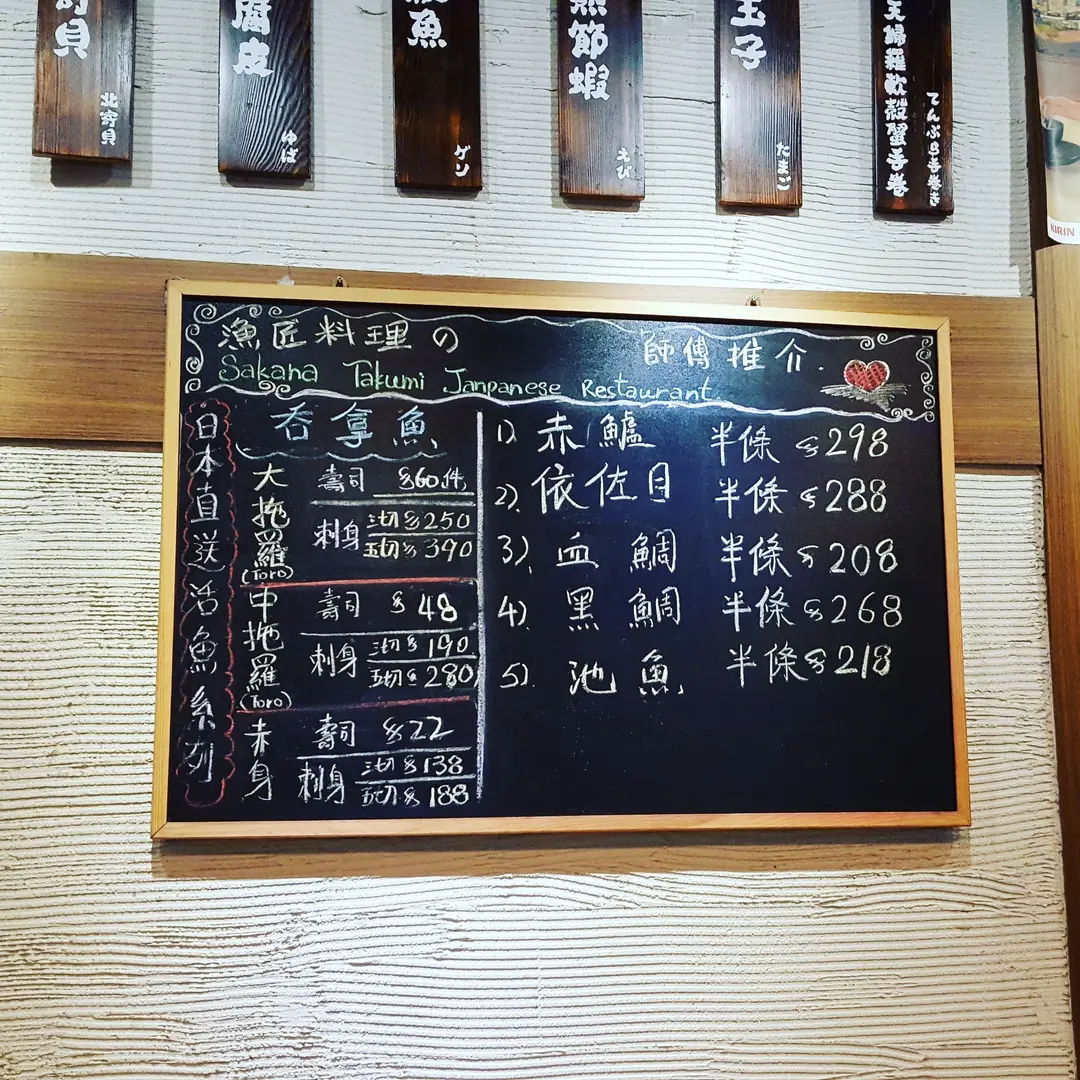 貝
北寄貝
腐皮
ゆば
魚
ゲソ
節蝦
えび
玉子
たまご
天婦羅軟殼蟹手卷
てんぷら手巻き
KIRIN
漁匠料理の
師傅推介.
Sakana Takumi Janpanese Restaurant
日本直送活魚系列
吞拿魚
大拖羅
(Toro)
壽司 $60件
刺身
三切 $250
五切 $390
中拖羅
(Toro)
壽司 $48
刺身
三切 $190
五切 $280
赤身
壽司 $22
刺身
三切 $138
五切 $188
1). 赤鱸 半條 $298
2). 依佐目 半條 $288
3). 血鯛 半條 $208
4). 黑鯛 半條 $268
5). 池魚 半條 $218